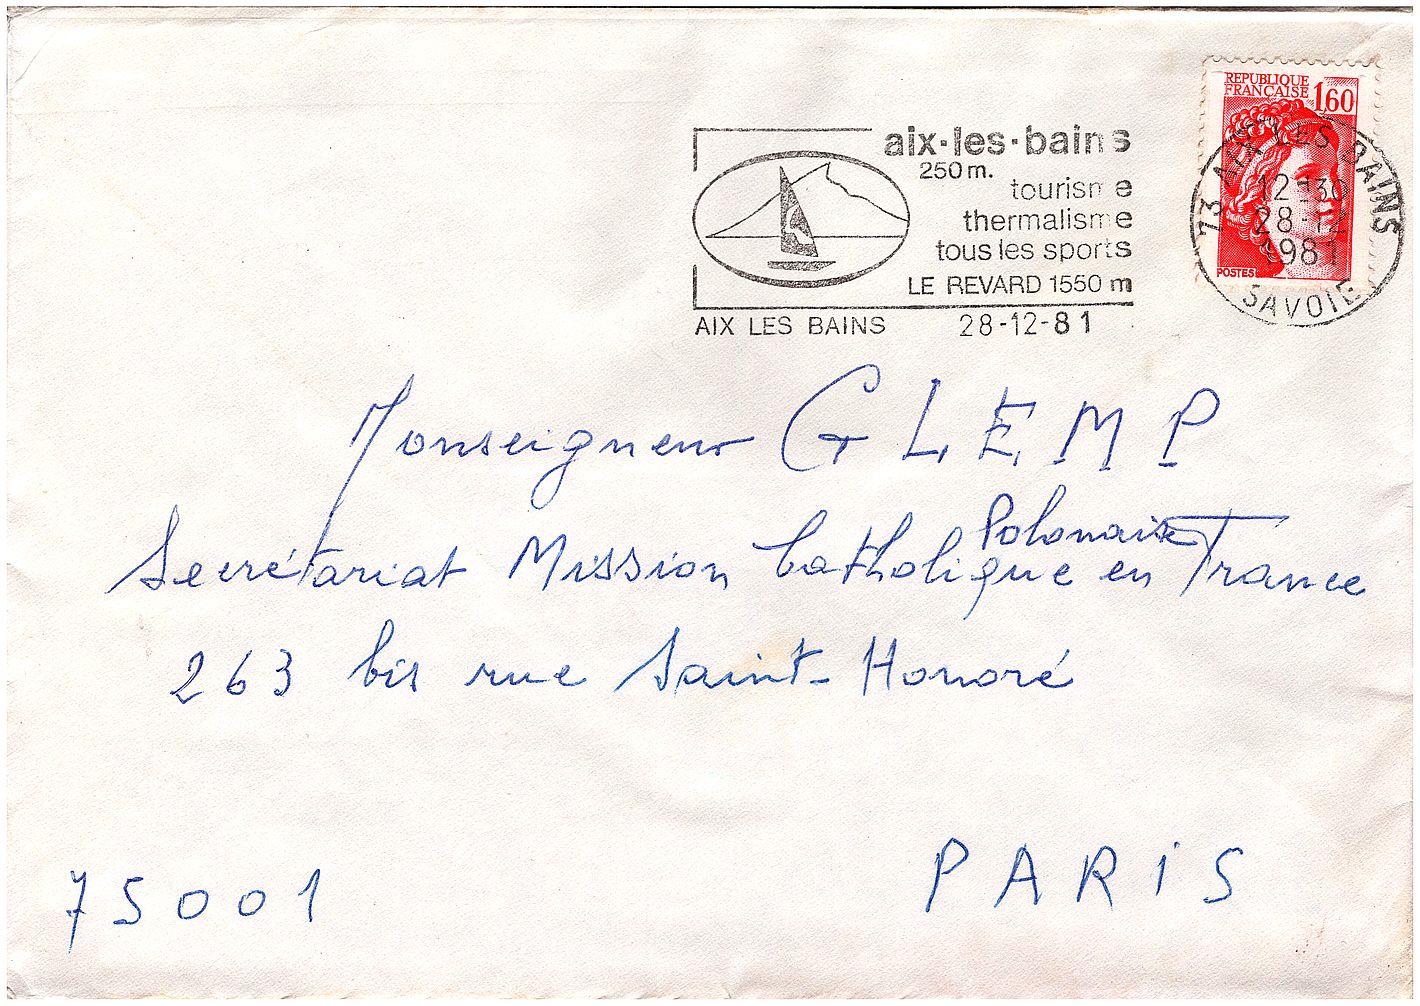 REPUBLIQUE
FRANÇAISE 1,60
POSTES
73 AIX LES BAINS
12-30
28-12
1981
SAVOIE
aix-les-bains
250 m.
tourisme
thermalisme
tous les sports
LE REVARD 1550 m
AIX LES BAINS 28-12-81
Monseigneur GLEMP
Polonaise
Secrétariat Mission Catholique en France
263 bis rue Saint-Honoré
75001 PARIS